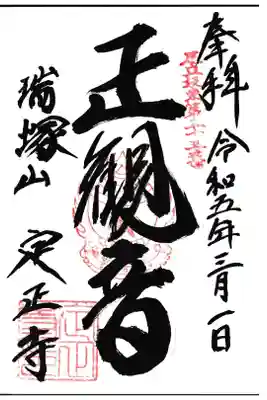 奉拝 令和五年三月一日
正観音
瑞塚山 定正寺